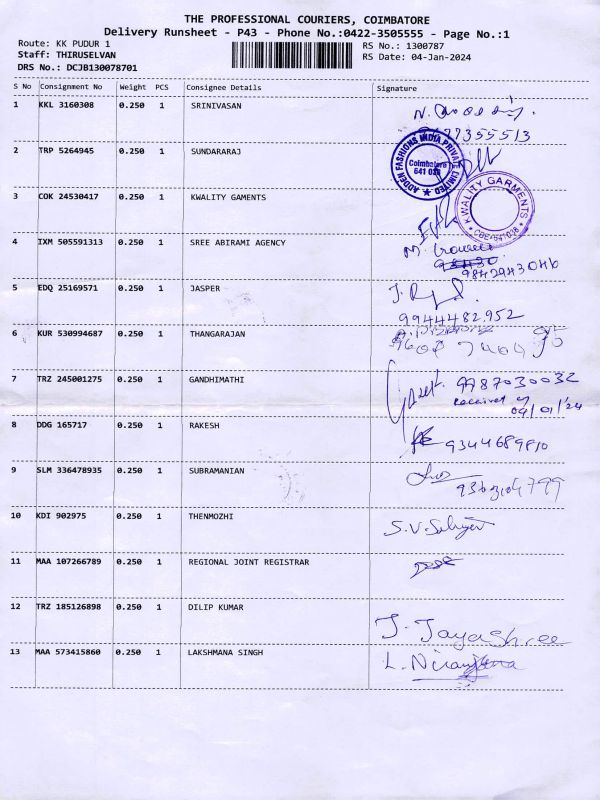 THE PROFESSIONAL COURIERS, COIMBATORE
Delivery Runsheet - P43 - Phone No.:0422-3505555 - Page No.:1
Route: KK PUDUR 1
RS No.: 1300787
Staff: THIRUSELVAN
RS Date: 04-Jan-2024
DRS No.: DCJB130078701
S No Consignment No Weight PCS Consignee Details Signature
1 KKL 3160308 0.250 1 SRINIVASAN
2 TRP 5264945 0.250 1 SUNDARARAJ
ADREN FASHIONS INDIA PRIVATE LIMITED
Coimbatore
641 038
3 COK 24530417 0.250 1 KWALITY GAMENTS
KWALITY GARMENTS
CBE-641038
4 IXM 505591313 0.250 1 SREE ABIRAMI AGENCY
5 EDQ 25169571 0.250 1 JASPER
9944482952
6 KUR 530994687 0.250 1 THANGARAJAN
7 TRZ 245001275 0.250 1 GANDHIMATHI
9987030032
received
04/01/24
8 DDG 165717 0.250 1 RAKESH
9344689810
9 SLM 336478935 0.250 1 SUBRAMANIAN
10 KDI 902975 0.250 1 THENMOZHI
11 MAA 107266789 0.250 1 REGIONAL JOINT REGISTRAR
12 TRZ 185126898 0.250 1 DILIP KUMAR
J. Jayashree
13 MAA 573415860 0.250 1 LAKSHMANA SINGH